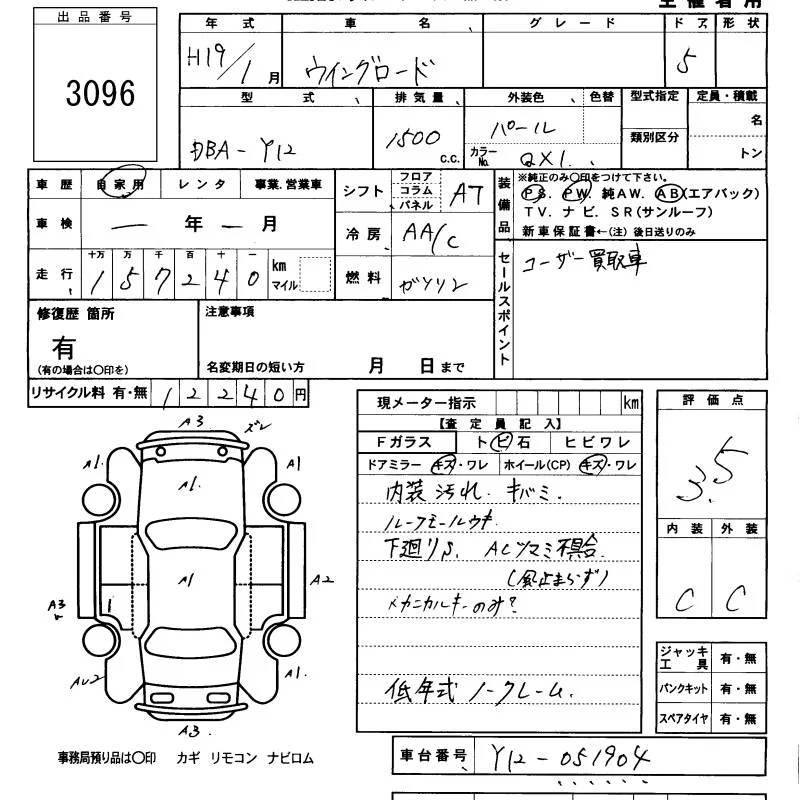 出品番号
3096
年式 車名 グレード ドア 形状
H19/1月 ウイングロード 5
型式 排気量 外装色 色替 型式指定 定員・積載
DBA-Y12 1500 C.C. パール カラーNo. QX1 類別区分 名 トン
車歴 自家用 レンタ 事業.営業車
車検 ― 年 ― 月
走行 十万 万 千 百 十 一 km マイル
157240
シフト フロア コラム パネル AT
冷房 AA/C
燃料 ガソリン
装備品 ※純正のみ○印をつけて下さい。
PS. PW. 純AW. AB(エアバック)
TV. ナビ. SR(サンルーフ)
新車保証書←(注) 後日送りのみ
セールスポイント
ユーザー買取車
修復歴 箇所
有
(有の場合は○印を)
注意事項
名変期日の短い方 月 日まで
リサイクル料 有・無 12240円
現メーター指示 km
【査定員記入】
Fガラス トビ石 ヒビワレ
ドアミラー キズ・ワレ ホイール(CP) キズ・ワレ
内装 汚れ. キバミ.
ルーフモールウキ
下廻りS. ACツマミ不具合.
(風止まらず)
メカニカルキーのみ?
低年式 ノークレーム.
評価点
3.5
内装 外装
C C
ジャッキ 工具 有・無
パンクキット 有・無
スペアタイヤ 有・無
A3 ズレ
A1. A1
A1.
A1 A2
A3
A1.
A3
事務局預り品は○印 カギ リモコン ナビロム
車台番号 Y12-051904